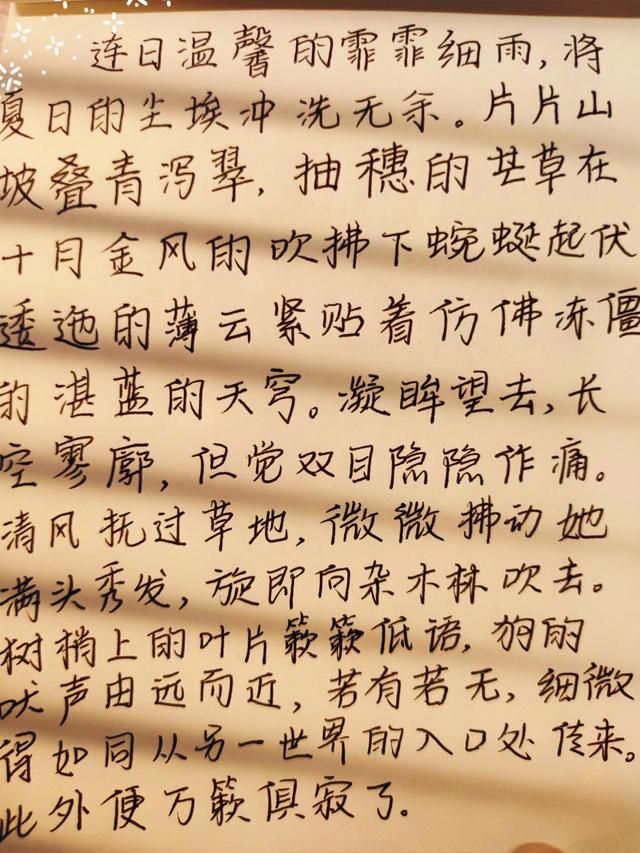 连日温馨的霏霏细雨,将
夏日的尘埃冲洗无余。片片山
坡叠青泻翠,抽穗的芒草在
十月金风的吹拂下蜿蜒起伏
逶迤的薄云紧贴着仿佛冻僵
的湛蓝的天穹。凝眸望去,长
空寥廓,但觉双目隐隐作痛。
清风抚过草地,微微拂动她
满头秀发,旋即向杂木林吹去。
树梢上的叶片簌簌低语,狗的
吠声由远而近,若有若无,细微
得如同从另一世界的入口处传来。
此外便万籁俱寂了。